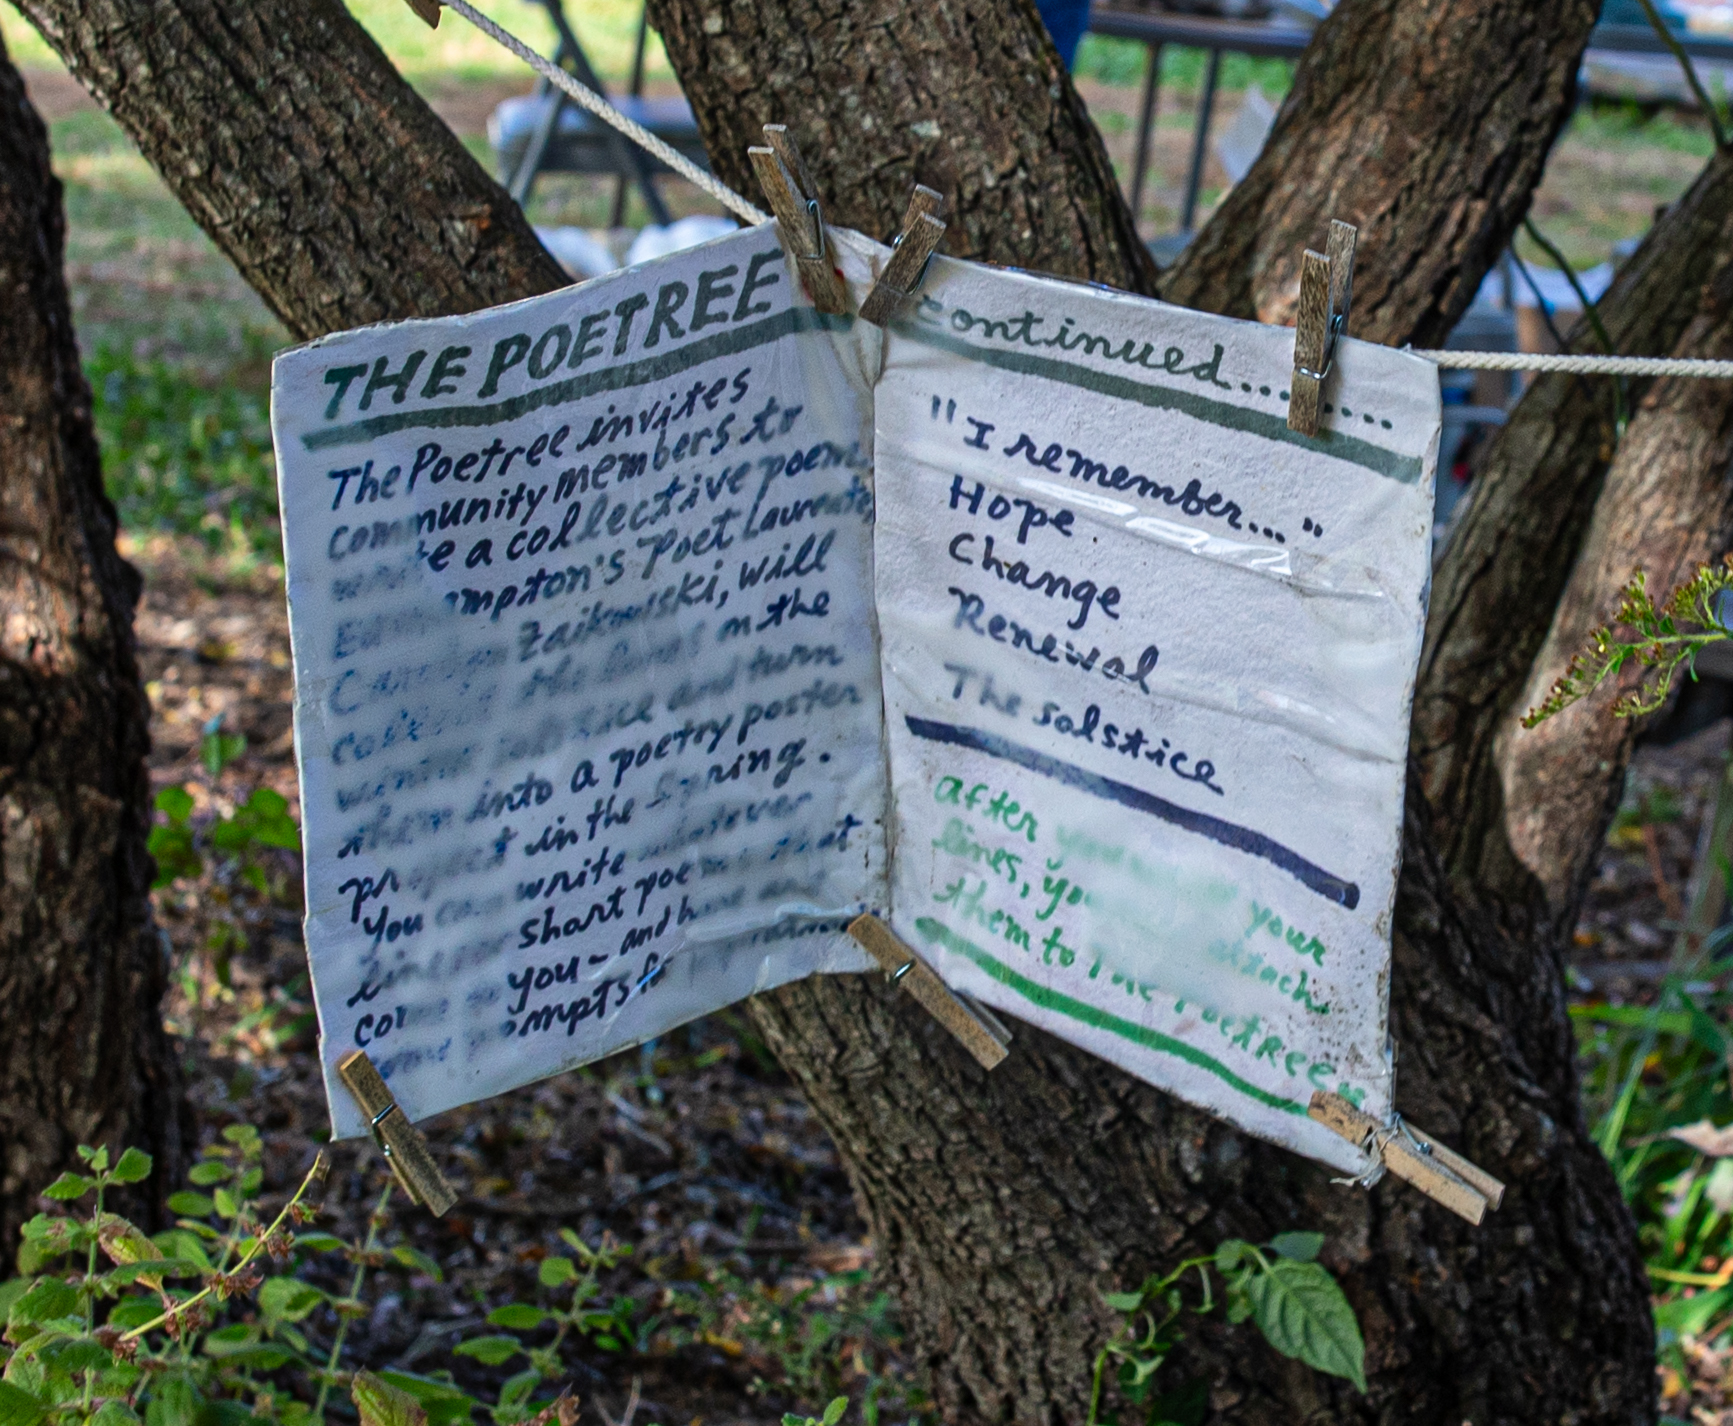 THE POETREE
The Poetree invites
community members to
write a collective poem.
Easthampton's Poet Laureate,
Carolyn Zaikowski, will
collect the lines on the
winter solstice and turn
them into a poetry poster
project in the Spring.
You can write whatever
lines or short poems that
come to you - and here are
some prompts for
continued........
"I remember..."
Hope
Change
Renewal
The Solstice
after your
lines, you your
them to attach
The Poetree